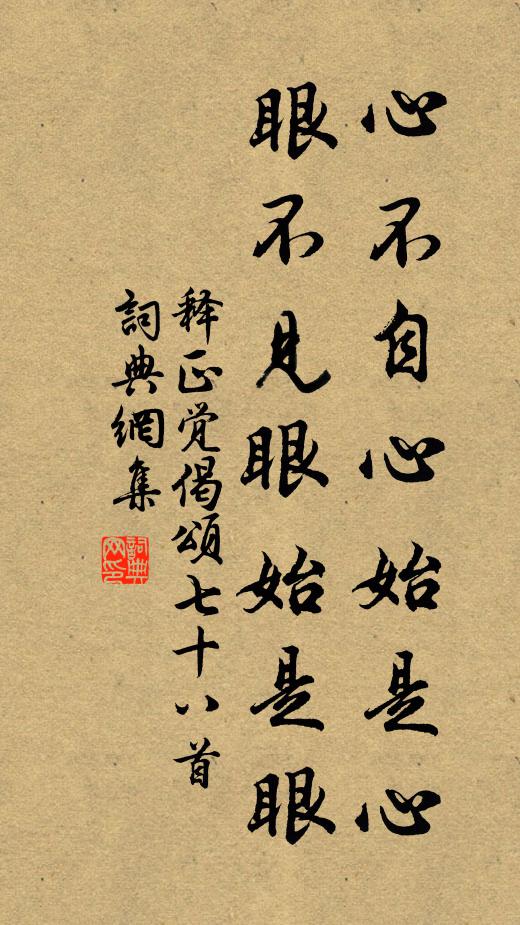 心不自心始是心
眼不见眼始是眼
释正觉偈颂七十八首
詞典網集
詞典
网印